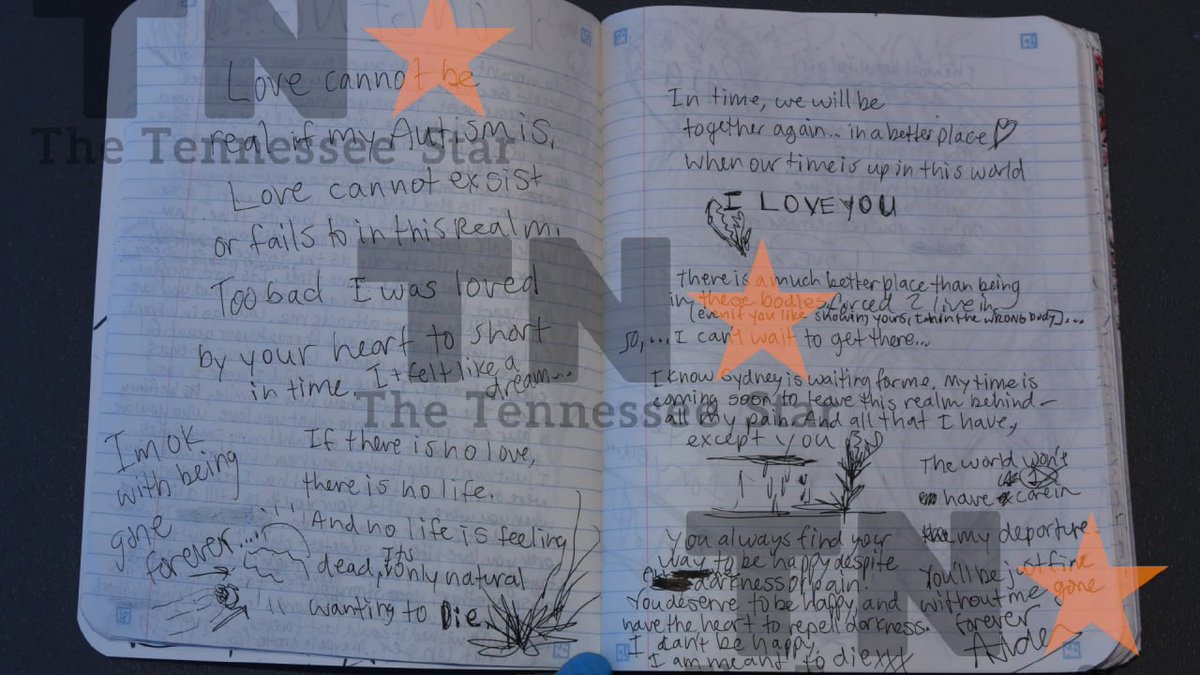 Love cannot be
real if my Autism is,
Love cannot exsist
or fails to in this Realm.
Too bad I was loved
by your heart to short
in time. It felt like a
dream...
I'm OK
with being
gone
forever...
If there is no love,
there is no life.
And no life is feeling
dead, Its only natural
wanting to Die.
In time, we will be
together again... in a better place
when our time is up in this world
I LOVE YOU
there is a much better place than being
in these bodies forced 2 live in
(even if you like showing yours, I am in the WRONG body)...
so, ... I can't wait to get there...
I know Sydney is waiting for me. My time is
coming soon to leave this realm behind-
all my pain and all that I have,
except you
The world won't
have care in
my departure
You'll be just fine
without me gone
forever
You always find your
way to be happy despite
darkness or pain
You deserve to be happy, and
have the heart to repell darkness.
I can't be happy.
I am meant to die xxx
TN
The Tennessee Star
TN
The Tennessee Star
TN